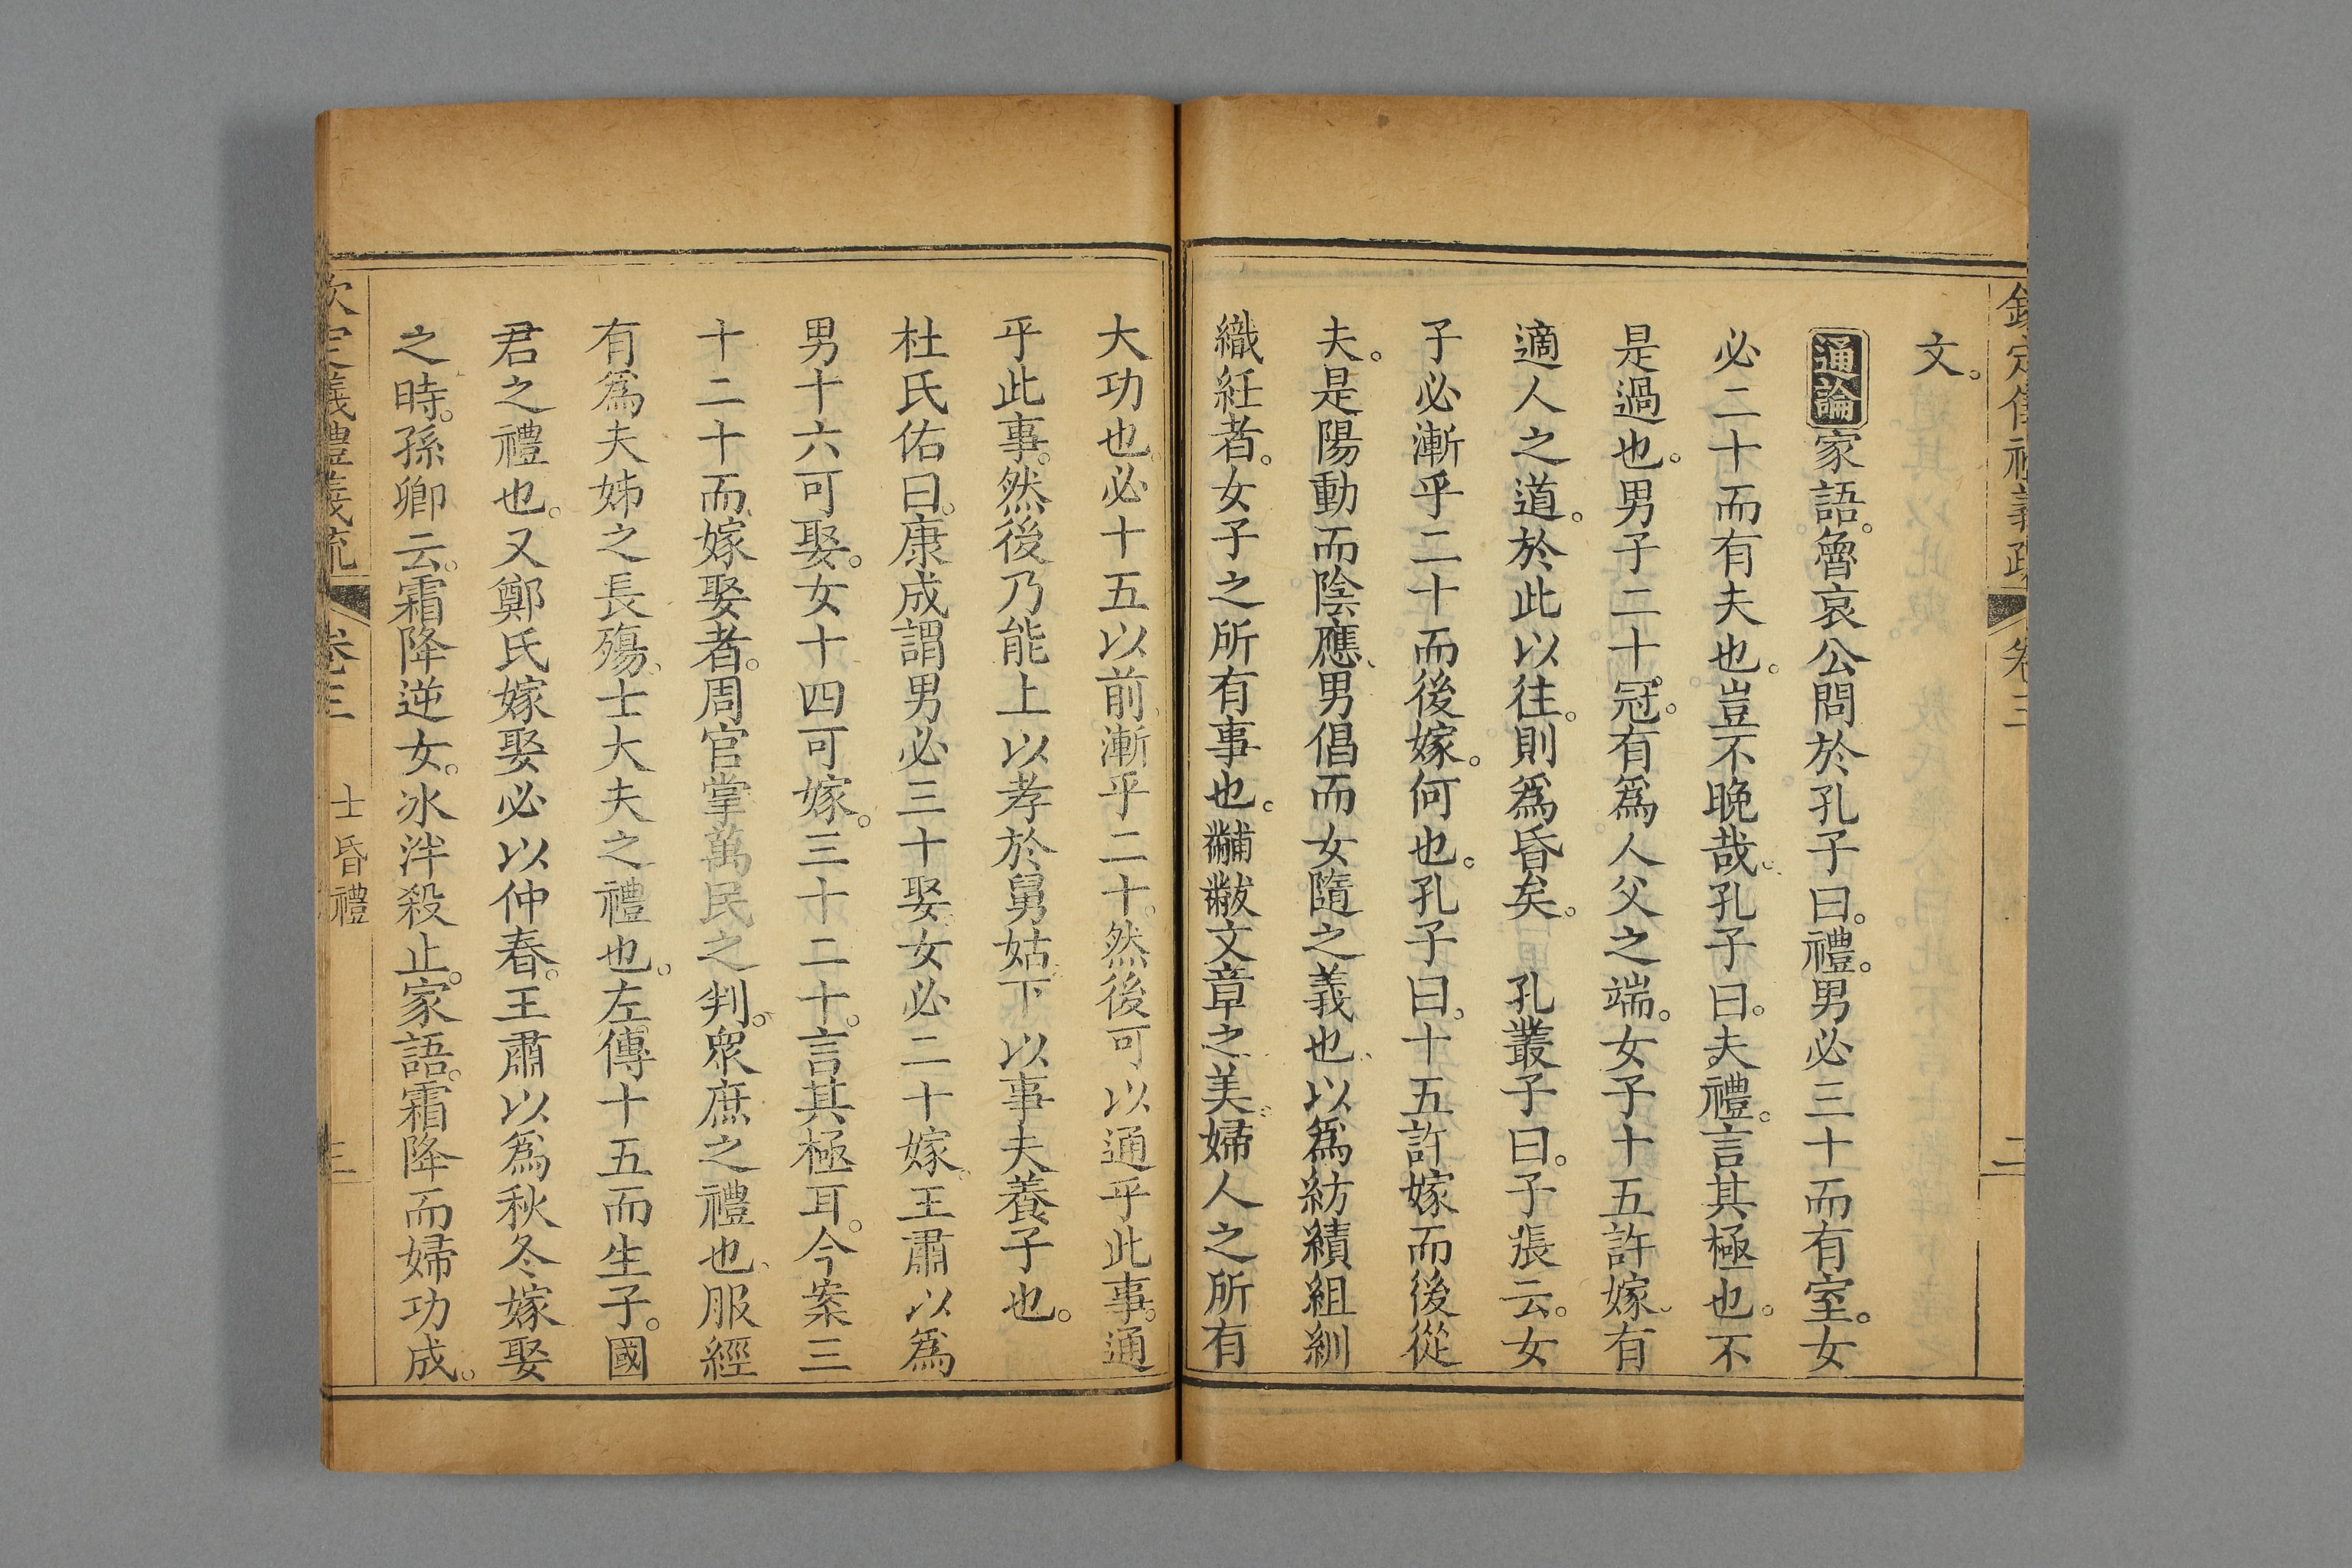 欽定儀禮義疏 卷三 二
文。
通論家語。魯哀公問於孔子曰。禮。男必三十而有室。女
必二十而有夫也。豈不晚哉。孔子曰。夫禮。言其極也。不
是過也。男子二十。冠。有爲人父之端。女子十五許嫁。有
適人之道。於此以往。則爲昏矣。 孔叢子曰。子張云。女
子必漸乎二十而後嫁。何也。孔子曰。十五許嫁而後從
夫。是陽動而陰應、男倡而女隨之義也、以爲紡績組紃
織紝者。女子之所有事也。黼黻文章之美、婦人之所有
大功也。必十五以前、漸乎二十。然後可以通乎此事。通
乎此事。然後乃能上以孝於舅姑、下以事夫養子也。
杜氏佑曰。康成謂男必三十娶。女必二十嫁、王肅以爲
男十六可娶。女十四可嫁。三十二十。言其極耳。今案三
十二十而嫁娶者。周官掌萬民之判。衆庶之禮也、服經
有爲夫姊之長殤、士大夫之禮也。左傳十五而生子。國
君之禮也。又鄭氏嫁娶必以仲春。王肅以爲秋冬嫁娶
之時。孫卿云。霜降逆女。冰泮殺止。家語。霜降而婦功成。
欽定義禮義疏 卷三 士昏禮 三